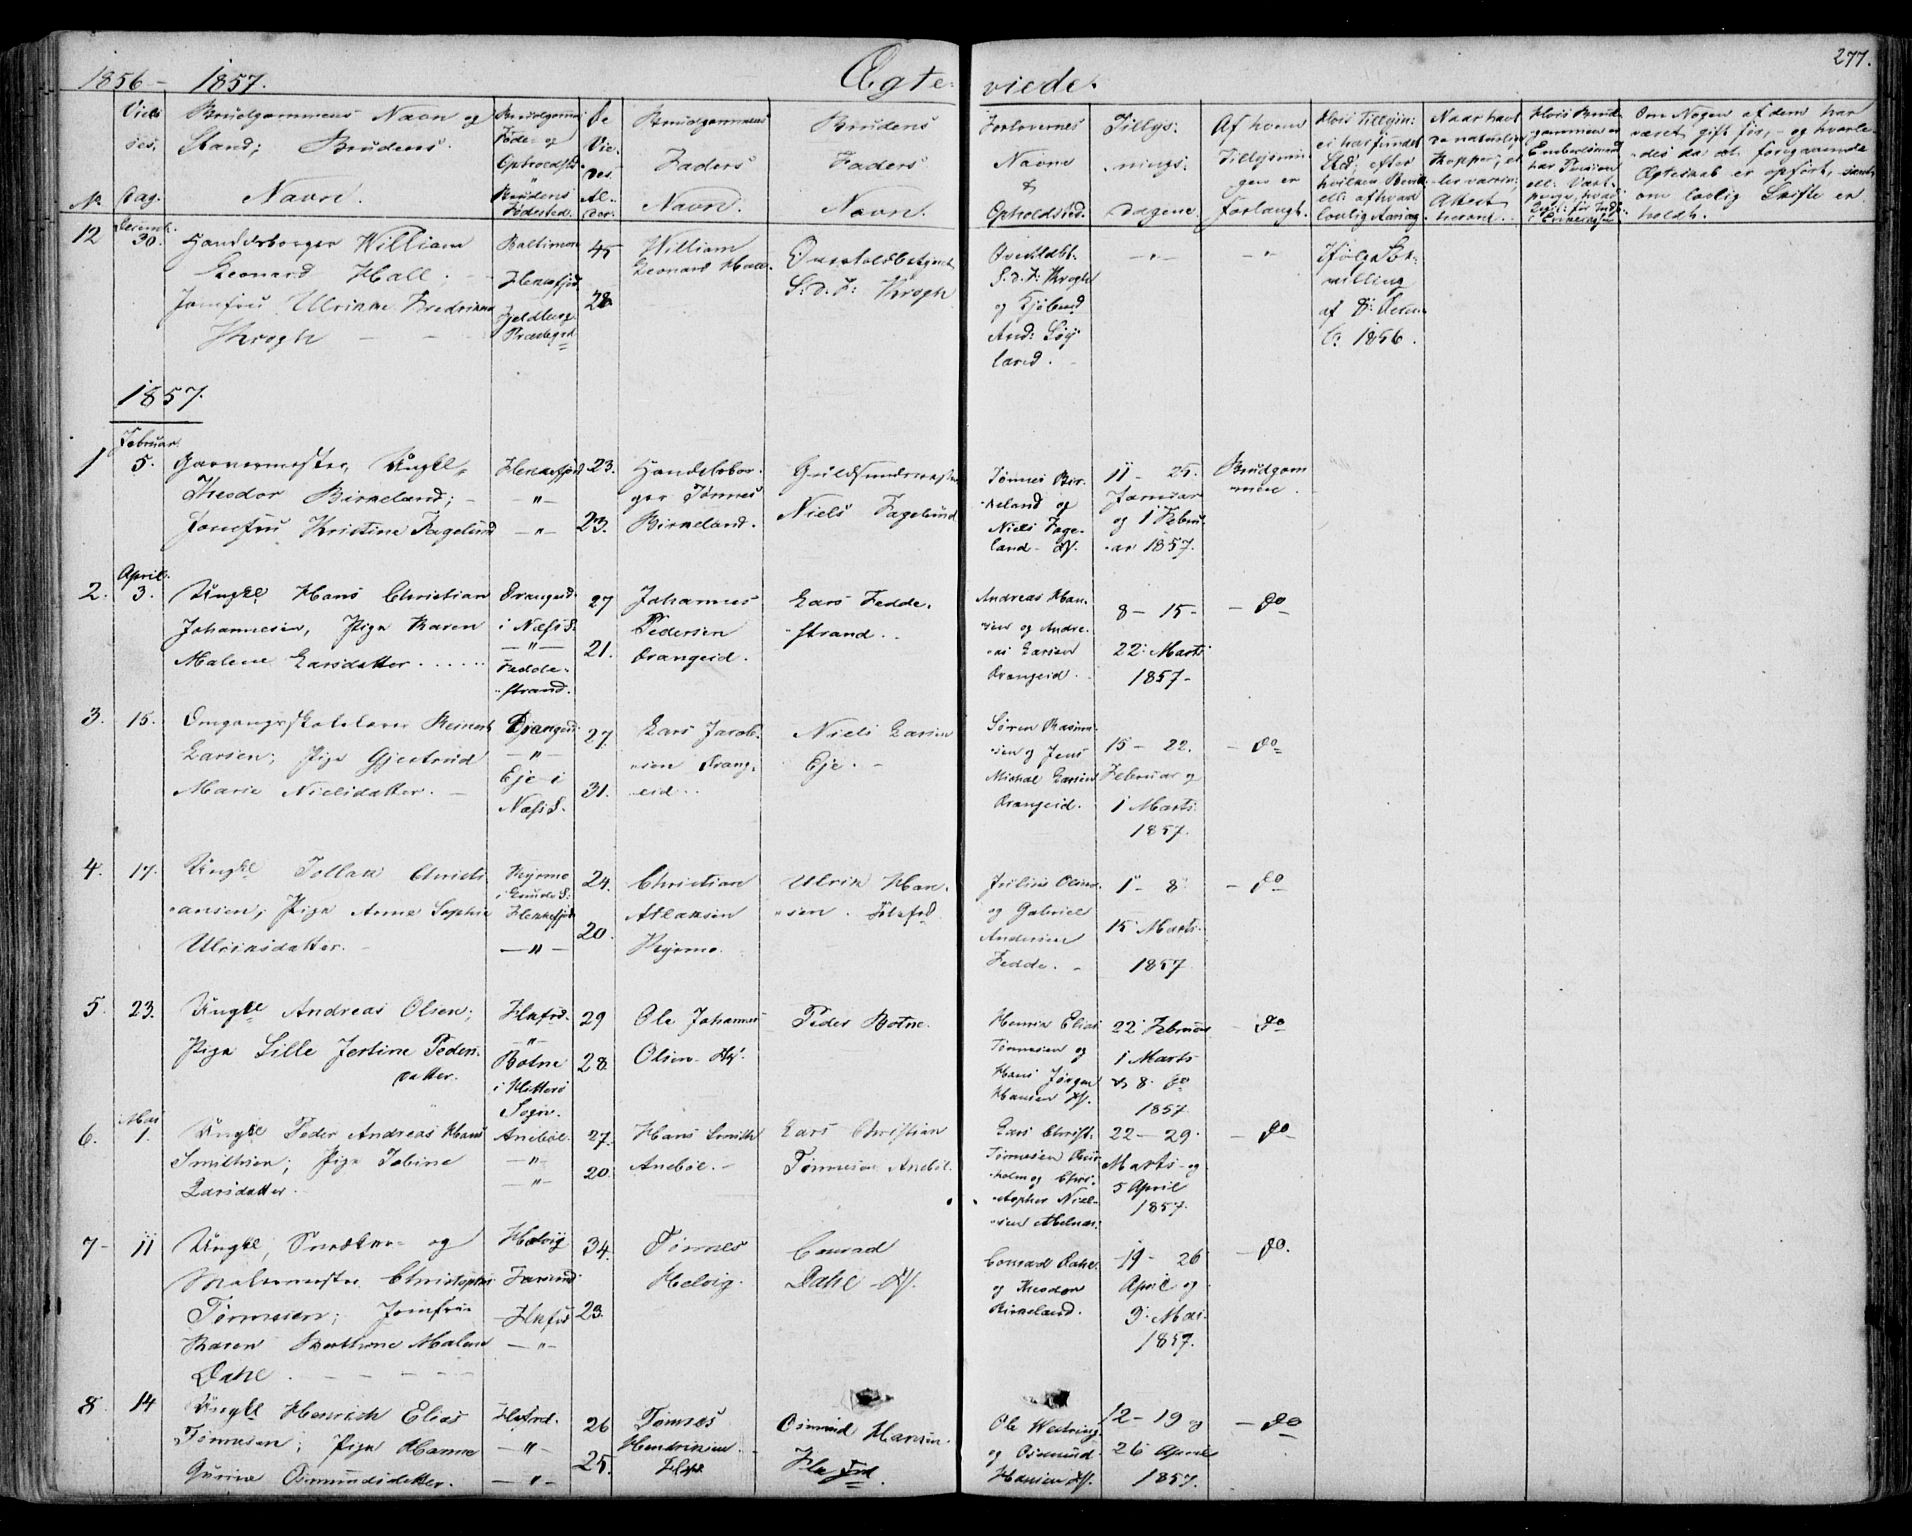 1856 - 1857.
Ægte-
viede.
277.
No
Viel-
ses-
Dag.
Brudgommens Navn og
Stand; Brudens
Navn.
Brudgoms
Føde- og
Opholdsstd.
Brudens
Fødested.
De
Vie-
des
Al-
der.
Brudgommens
Faders
Navn.
Brudens
Faders
Navn.
Forlovernes
Navne
&
Opholdssted.
Tillys-
nings-
Dagene.
Af hvem
Tillysnin-
gen er
forlangt.
Hvis Tillysn:
ei har fundet
Sted; efter
hvilken Bevill:
ell: af hvad
lovlig Aarsag
Naar havt
de naturlige
Kopper, el-
ler vaccin;
Attest
herom.
Hvis Brud-
gommen er
Embedsmand
har Pension
Om Nogen af dem har
været gift før, - og hvorle-
des da det foregaaende
Ægteskab er opført, samt
om lovlig Skifte er
holdt.
12
Decemb.
30.
Handelsborger William
Leonard Hall; -
Jomfru Ulrikke Fredrikke
Krogh - -
Baltimore
Flekkefjord
Fjeldberg
Præstegrd
45
28.
William
Leonard Hall.
Overtoldbetjent
S. d. F: Krogh
Overtoldbt.
S. d. F: Krogh
og Kjøbmd
And: Søy-
land. -
- " -
- " -
Ifølge Be-
villing
af 8: Decem-
b: 1856.
1857.
1
Februar.
5.
Garvermester, Ungkl.
Theodor Birkeland; -
Jomfru Kristine Fageland
Flekkefjord
- " -
- " -
23.
23.
Handelsbor-
ger Tønnes
Birkeland.
Guldsmedmester
Niels Fageland
Tønnes Bir-
keland og
Niels Fage-
land - Ff.
11 - 25.
Januar
og 1 Febru-
ar 1857.
Brudgom-
men.
2.
April.
3.
Ungkl. Hans Christian
Johannesen, Pige Karen
Malene Larsdatter . . . . .
Drangeid.
i Næs S.
- " -
Fedde-
strand.
27
21.
Johannes
Pedersen
Drangeid.
Lars Fedde-
strand. .
Andreas Han-
sen og Andre-
as Larsen
Drangeid.
8 - 15 -
22. Marts
1857 -
- do
3.
15.
Omgangsskolelærer Reinert
Larsen; Pige Gjertrud
Marie Nielsdatter. -
Drangeid.
- " -
Eje i
Næs S.
27.
31.
Lars Jacob-
sen Drang-
eid. .
Niels Larsen
Eje. -
Søren Rasmu-
sen og Jens
Michal Larsen
Drangeid.
15 - 22.
Februar og
1 Marts.
1857.
- do
4.
17.
Ungkl. Tollak Christi-
ansen; Pige Anne Sophie
Ulriksdatter. -
i
Flekkefjord
- " -
24.
20.
Christian
Atlaksen
Ulrik Han-
sen.
og Gabriel
Andersen
Fedde. -
1 - 8
15 Marts.
1857.
- do
5.
23.
Ungkl. Andreas Olsen;
Pige Lille Jertine Peders-
datter.
Flkfrd.
- " -
Botne
i Hitterø
Sogn.
29
28
Ole Johannes
Olsen - Ff.
Peder Botne.
Henrik Elias
Tønnesen og
Hans Jørgen
Hansen Ff.
22 Februar
1 Marts
og 8. do
1857.
- do
6.
Mai
1.
Ungkl. Peder Andreas Hans
Smithsen; Pige Tobine
Larsdatter.
Anebøe.
- " -
- " -
27.
20.
Hans Smith
Anebøe. -
Lars Christian
Tønnesen Anebøe.
Lars Christ.
Tønnesen
og Chri-
stopher Niel-
sen Abelnæs.
22 - 29.
Marts - og
5 April
1857.
- do -
7 -
11
Ungkl, Snedker- og
Malermester Christopher
Tønnesen; Jomfru
Karen Berthine Malene
Dahl . - - - -
Helvig
Farsund.
Flkfrd
- " -
34.
23.
Tønnes
Helvig.
Conrad
Dahl - Ff.
Conrad Dahl.
og Theodor
Birkeland.
19 - 26
April og
3. Mai.
1857.
- do.
8.
14
Ungkl Henrich Elias
Tønnesen; Pige Hanne
Gurine Osmundsdatter.
Flkfrd.
- " -
- " -
26
25.
Tønnes
Hendriksen
Flkfd.
Osmund Hansen.
Flkfrd.
Ole Westring
og Osmund
Hansen Ff.
12 - 19 og
26 April
1857.
- do